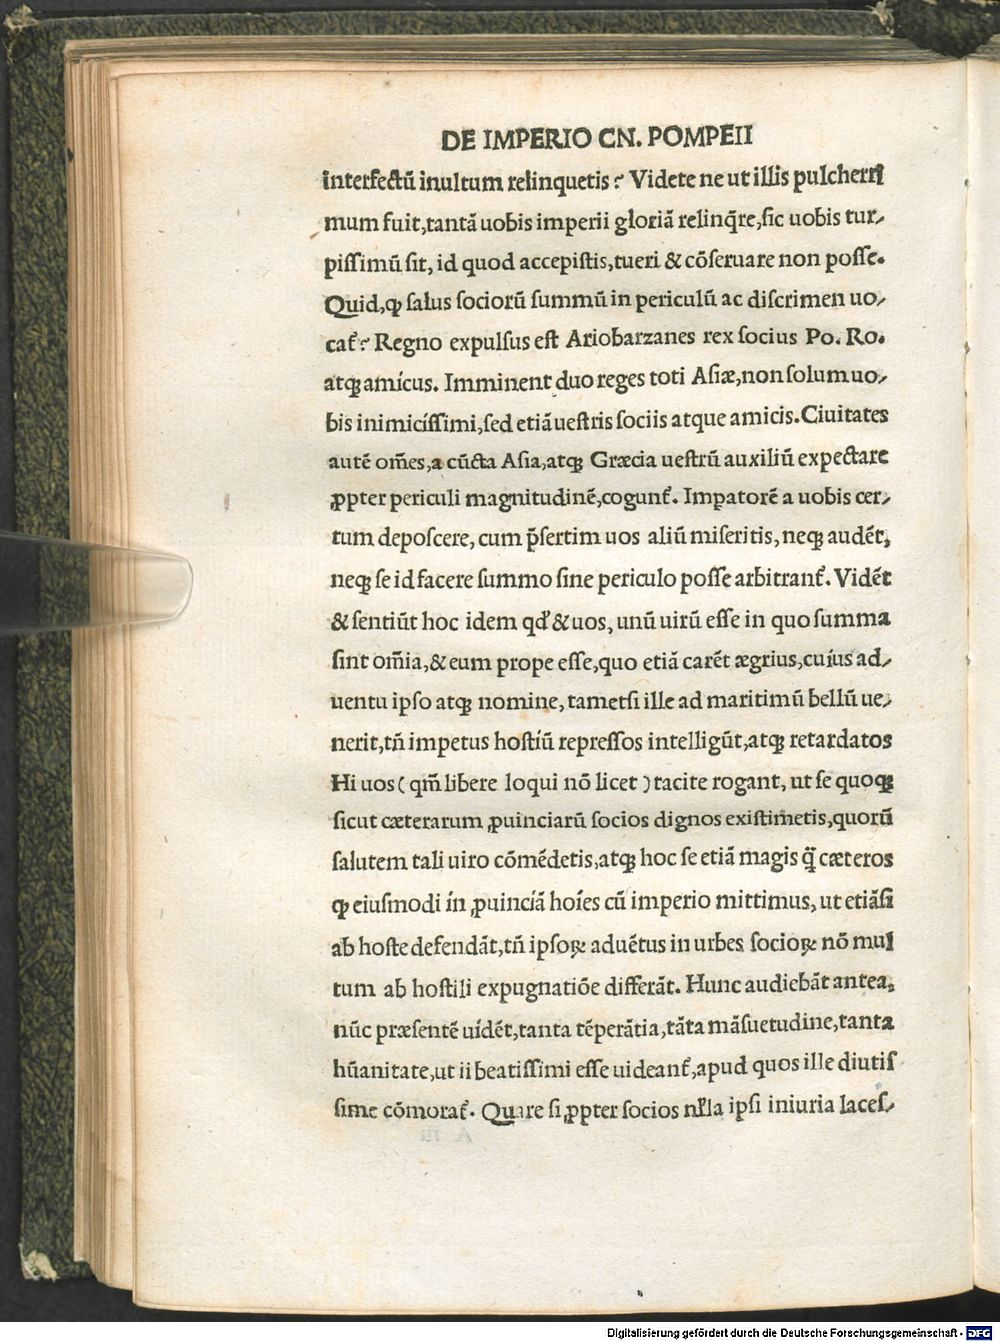 DE IMPERIO CN. POMPEII
interfectū inultum relinquetis? Videte ne ut illis pulcherri
mum fuit,tantā uobis imperii gloriā relinq̄re,sic uobis tur-
pissimū sit, id quod accepistis,tueri & cōseruare non posse.
Quid,ꝙ salus sociorū summū in periculū ac discrimen uo-
catᷣ? Regno expulsus est Ariobarzanes rex socius Po. Ro.
atqꝫ amicus. Imminent duo reges toti Asiæ,non solum uo-
bis inimicissimi,sed etiā uestris sociis atque amicis.Ciuitates
autē om̄es,a cūcta Asia,atqꝫ Græcia uestrū auxiliū expectare
ꝓpter periculi magnitudinē,coguntᷣ. Impatorē a uobis cer-
tum deposcere, cum p̄sertim uos aliū miseritis, neqꝫ audēt,
neqꝫ se id facere summo sine periculo posse arbitrantᷣ. Vidēt
& sentiūt hoc idem qđ & uos, unū uirū esse in quo summa
sint om̄ia,& eum prope esse,quo etiā carēt ægrius,cuius ad-
uentu ipso atqꝫ nomine, tametsi ille ad maritimū bellū ue-
nerit,tn̄ impetus hostiū repressos intelligūt,atqꝫ retardatos
Hi uos ( qm̄ libere loqui nō licet ) tacite rogant, ut se quoqꝫ
sicut cæterarum ꝓuinciarū socios dignos existimetis,quorū
salutem tali uiro cōmēdetis,atqꝫ hoc se etiā magis q̄ cæteros
ꝙ eiusmodi in ꝓuinciā hoīes cū imperio mittimus, ut etiāsi
ab hoste defendāt,tn̄ ipsoꝝ aduētus in urbes socioꝝ nō mul
tum ab hostili expugnatiōe differāt. Hunc audiebāt antea,
nūc præsentē uidēt,tanta tēperātia,tāta māsuetudine,tanta
hūanitate,ut ii beatissimi esse uideantᷣ,apud quos ille diutis
sime cōmoratᷣ. Quare si ꝓpter socios nꝉla ipsi iniuria laces-
Digitalisierung gefördert durch die Deutsche Forschungsgemeinschaft - DFG